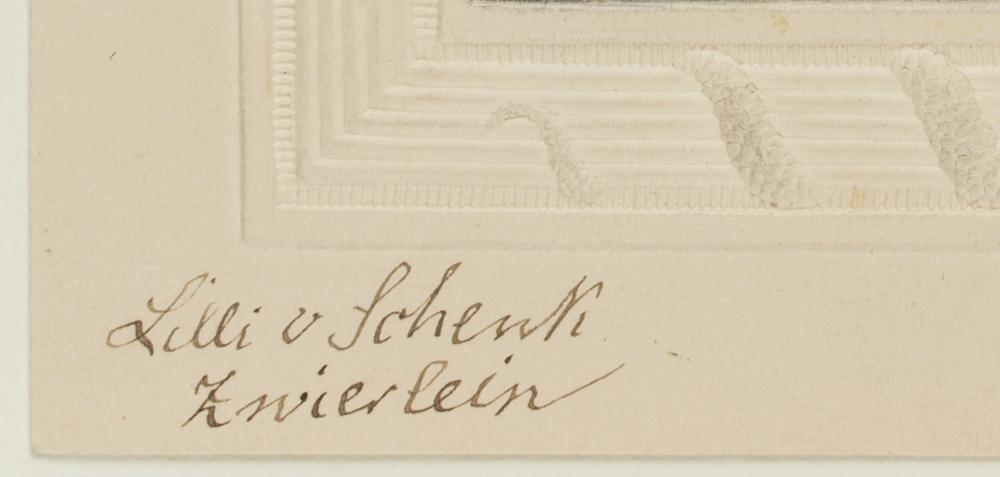 Lilli v Schenk
Zwierlein